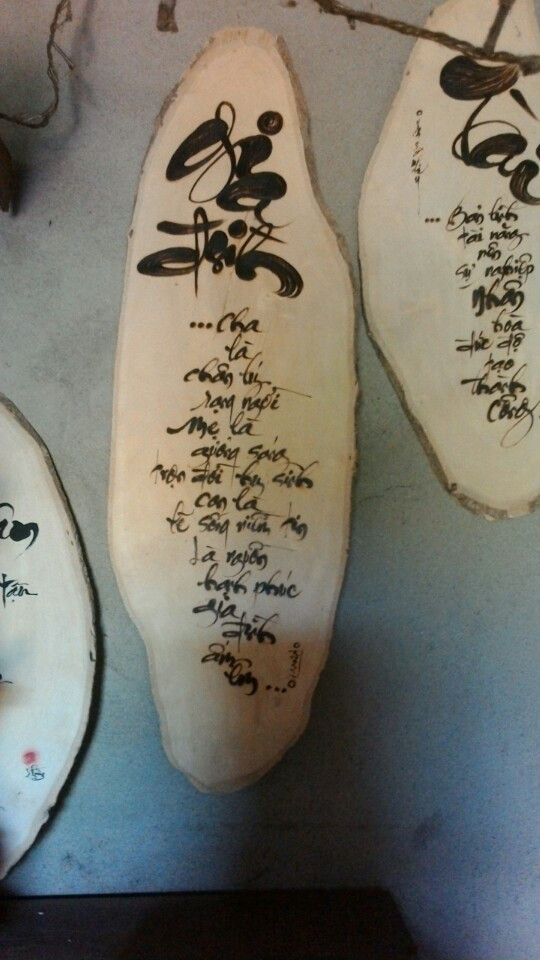 gia
đình
...cha
là
chân lý
rạng ngời
Mẹ là
gương sáng
trọn đời hy sinh
con là
lẽ sống niềm tin
Là nguồn
hạnh phúc
gia
đình
ấm
êm...
Tài
...Bản lĩnh
tài năng
nên
sự nghiệp
Nhân
hòa
đức độ
tạo
thành
công
tận